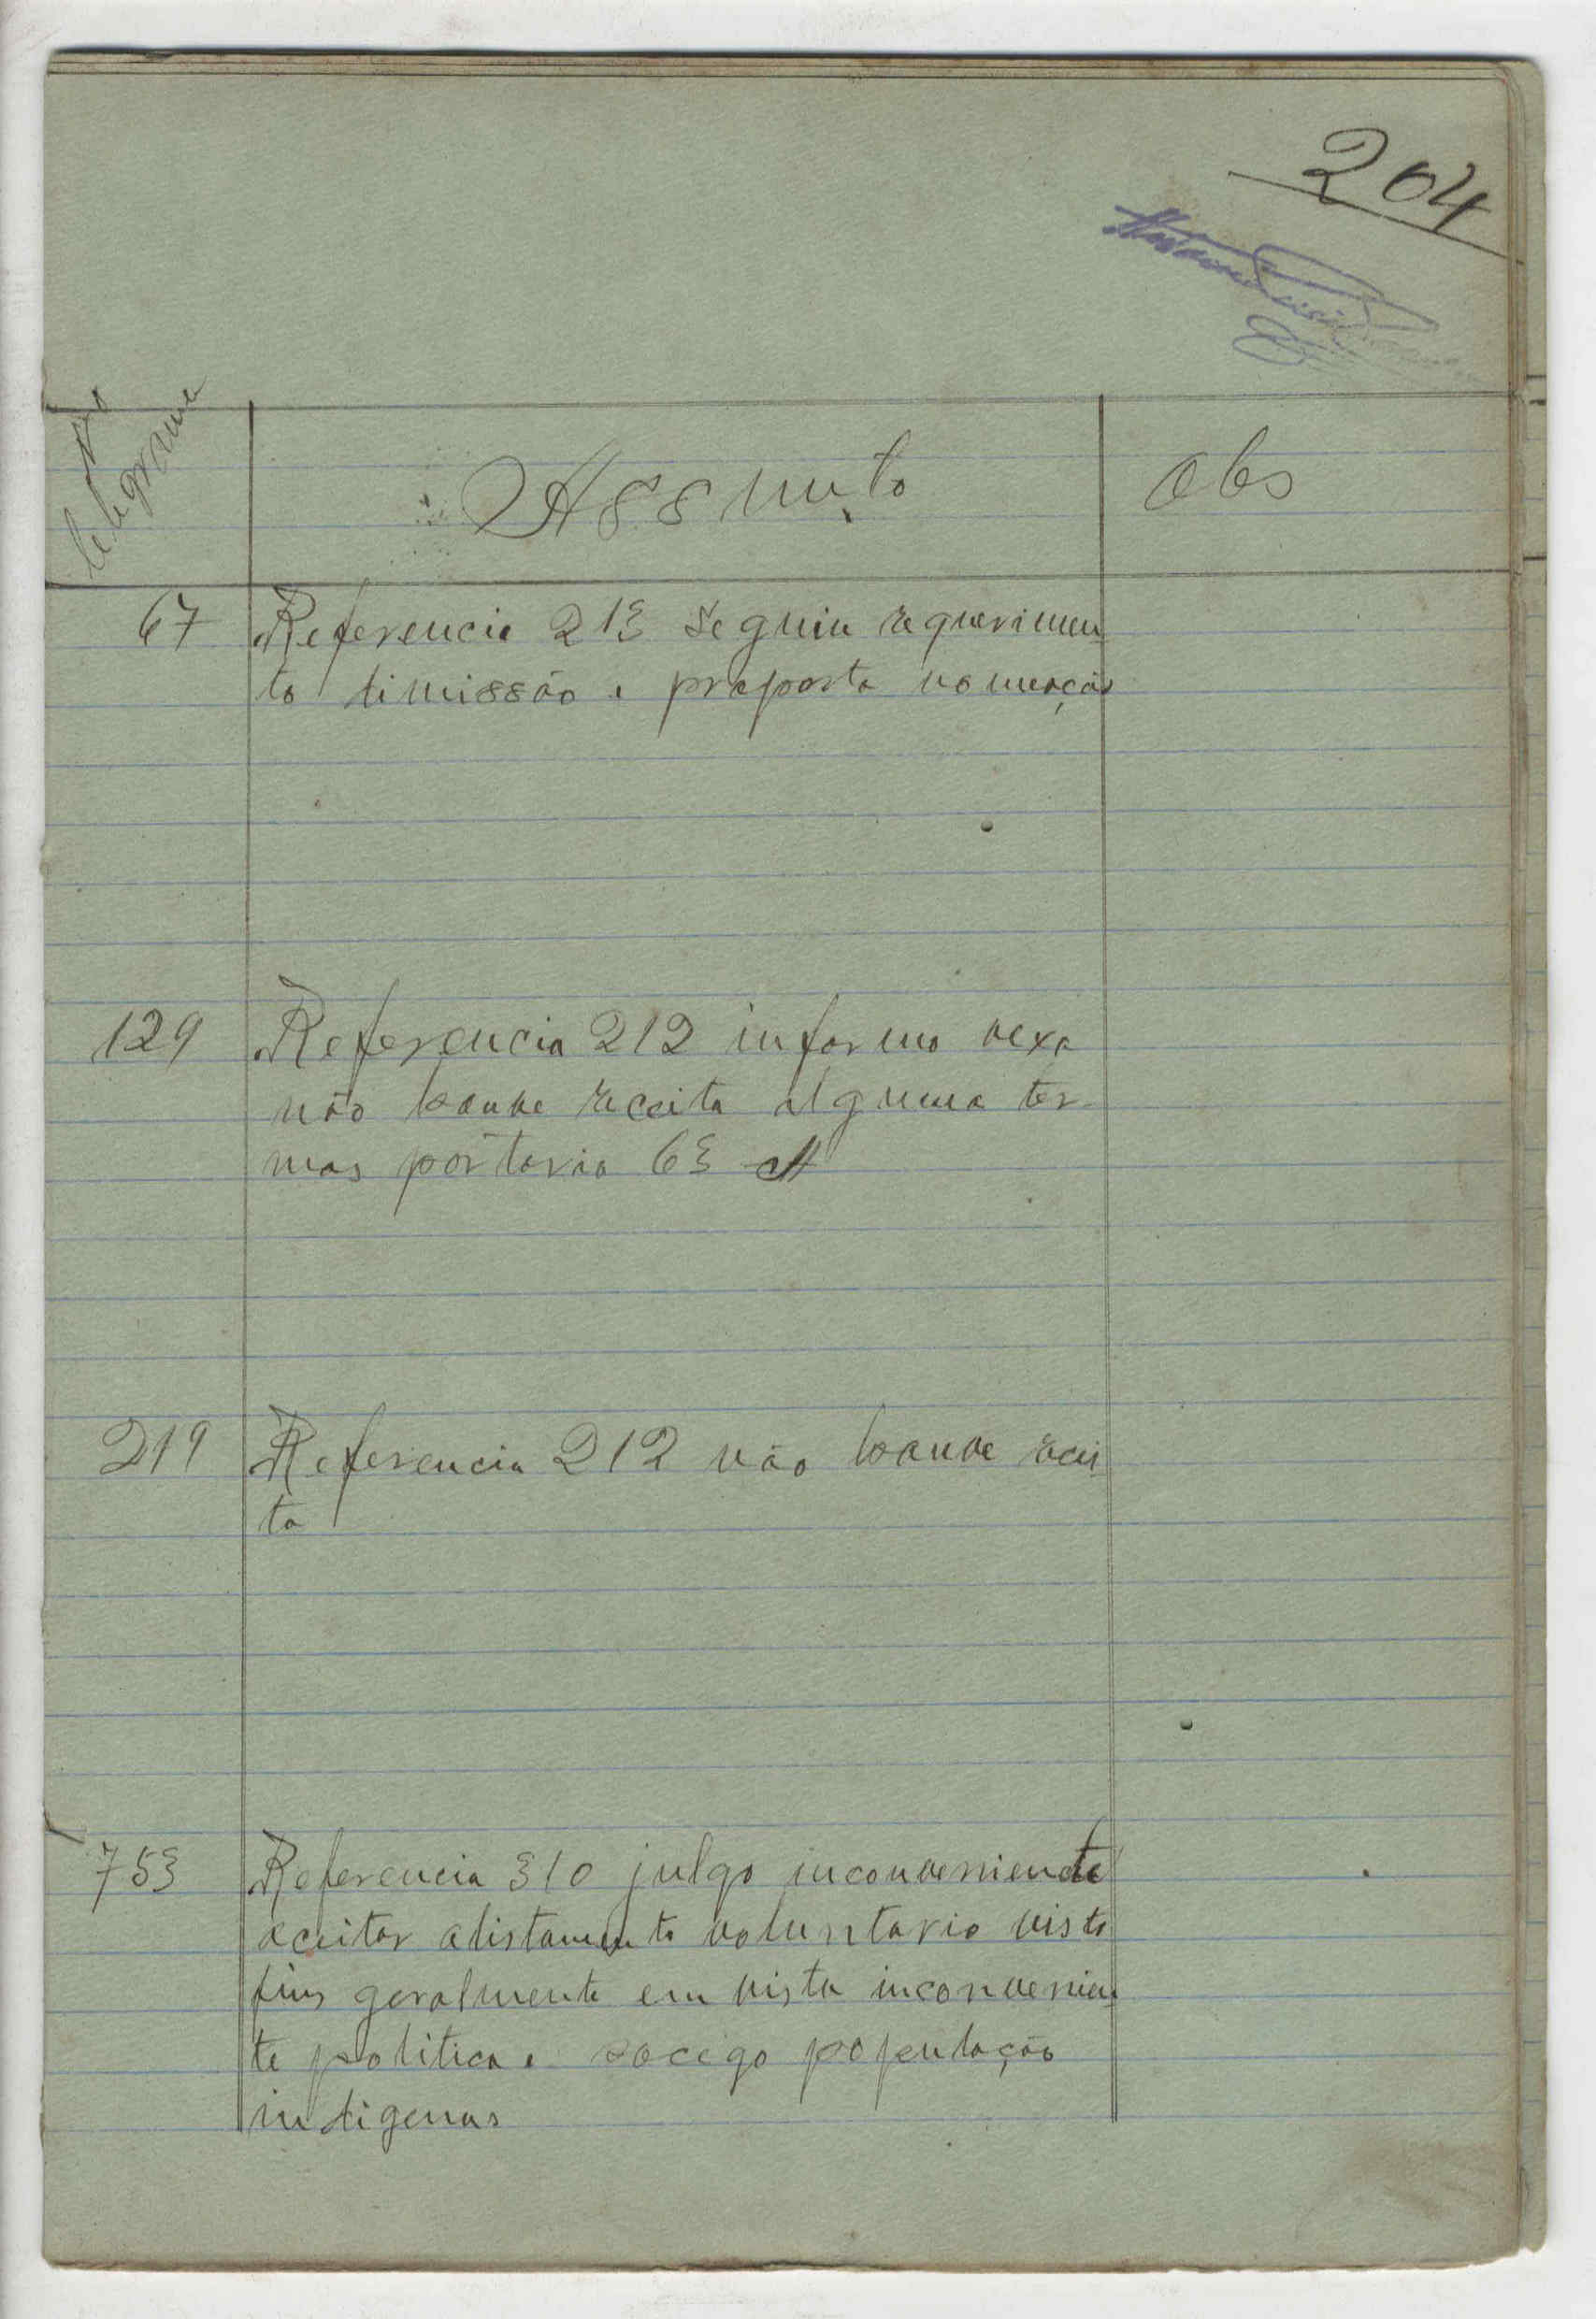 204
No
telegrama
Assunto
Obs
67
Referencia 213 seguiu requerimen
to dimissão e proposta nomeação
129
Referencia 212 informo vexa
não houve receita alguma ter
mos portaria 63 A
219
Referencia 212 não houve recei
ta
753
Referencia 310 julgo inconveniente
aceitar alistamento voluntario visto
fins geralmente em vista inconvenien
te politica e socego população
indigenas